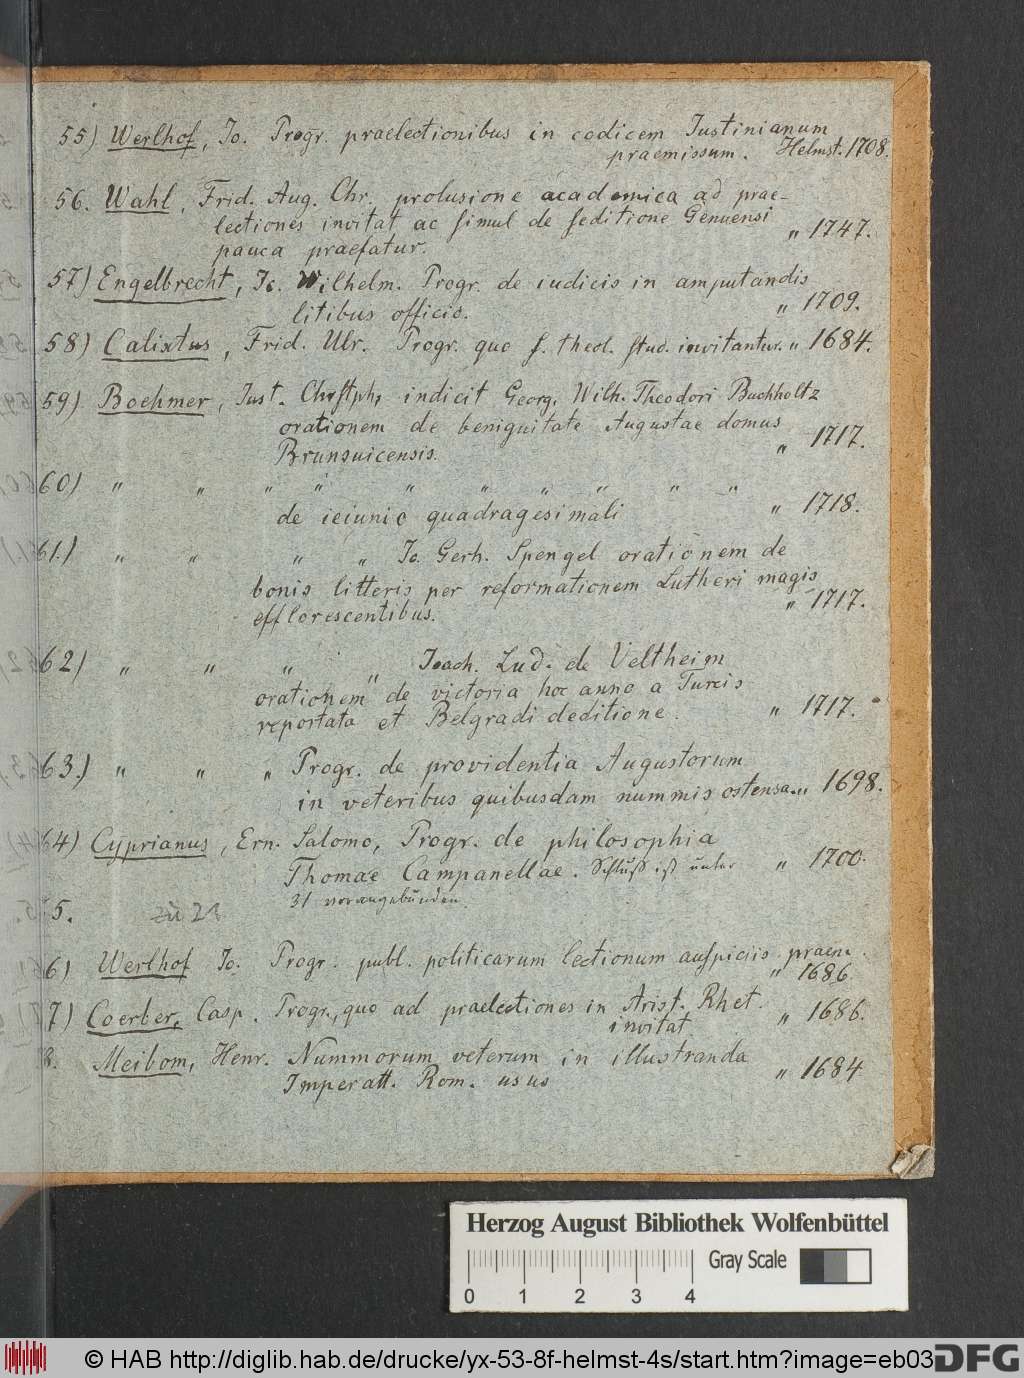 55) Werlhof, Jo. Progr. praelectionibus in codicem Justinianum
praemissum. Helmst. 1708.
56. Wahl, Frid. Aug. Chr. prolusione academica ad prae-
lectiones invitat ac simul de seditione Genuensi
pauca praefatur. " 1747.
57) Engelbrecht, Jo. Wilhelm. Progr. de iudicis in amputandis
litibus officio. " 1709.
58) Calixtus, Frid. Ulr. Progr. quo s. theol. stud. invitantur. " 1684.
59) Boehmer, Just. Chrstph, indicit Georg. Wilh. Theodori Buchholtz
orationem de benignitate Augustae domus
Brunsuicensis. " 1717.
60) " " " " " " " " " "
de ieiunio quadragesimali " 1718.
61.) " " " " Jo. Gerh. Spengel orationem de
bonis litteris per reformationem Lutheri magis
efflorescentibus. " 1717.
62) " " " " Joach. Lud. de Veltheim
orationem de victoria hoc anno a Turcis
reportata et Belgradi deditione. " 1717.
63.) " " " Progr. de providentia Augustorum
in veteribus quibusdam nummis ostensa. " 1698.
64) Cyprianus, Ern. Salomo, Progr. de philosophia
Thomae Campanellae. Schluß ist unter " 1700.
31 vorangebunden.
5. zu 21
6) Werlhof Jo. Progr. publ. politicarum lectionum auspiciis praem.
" 1686.
7) Coerber, Casp. Progr., quo ad praelectiones in Arist. Rhet.
invitat " 1686.
8. Meibom, Henr. Nummorum veterum in illustranda
Imperatt. Rom. usus " 1684
Herzog August Bibliothek Wolfenbüttel
Gray Scale
0 1 2 3 4
© HAB http://diglib.hab.de/drucke/yx-53-8f-helmst-4s/start.htm?image=eb03
DFG